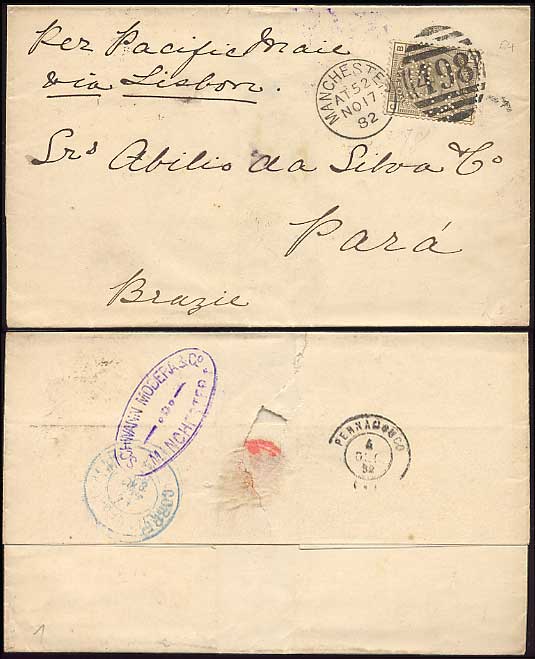 Per Pacific Mail
via Lisbon.
MANCHESTER
AT 52
NO 17
82
498
B
Srs Abilio da Silva & Co
Pará
Brazil
SCHWANN MODERA & Co
MANCHESTER
PERNAMBUCO
4
82
CORR